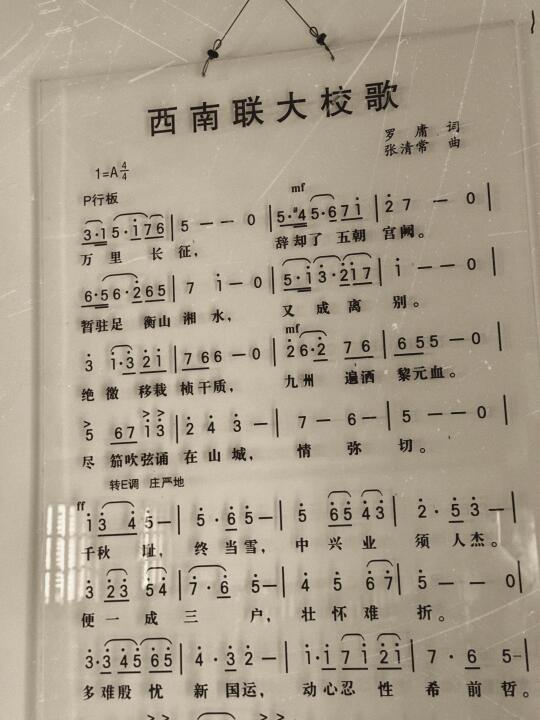 西南联大校歌
罗庸 词
张清常 曲
1=A 4/4
P行板
mf
3·1 5·i 76 | 5 — — 0 | 5·#4 5·6 7i | 2 7 — 0 |
万里长征， 辞却了 五朝 宫阙。
6·5 6·2 65 | 7 i — 0 | 5·i 3·2 i7 | i — — 0 |
暂驻足 衡山 湘水， 又成离别。
mf
3 i·3 2i | 7 66 — 0 | 2 6·2 76 | 6 55 — 0 |
绝徼 移栽 桢干质， 九州 遍洒 黎元血。
5 67 i3 | 2 4 3 — | 7 — 6 — | 5 — — 0 |
尽笳吹弦诵 在山城， 情弥切。
转E调 庄严地
ff
i 3 4 5 — | 5 · 6 5 — | 5 65 43 | 2 · 5 3 — |
千秋耻， 终当雪， 中兴业 须人杰。
3 23 54 | 7 · 6 5 — | 4 5 67 | 5 — — 0 |
便一成三户， 壮怀难折。
3·3 45 65 | 4 · 3 2 — | i·i 7i 2i | 7 · 6 5 — |
多难殷忧 新国运， 动心忍性 希前哲。